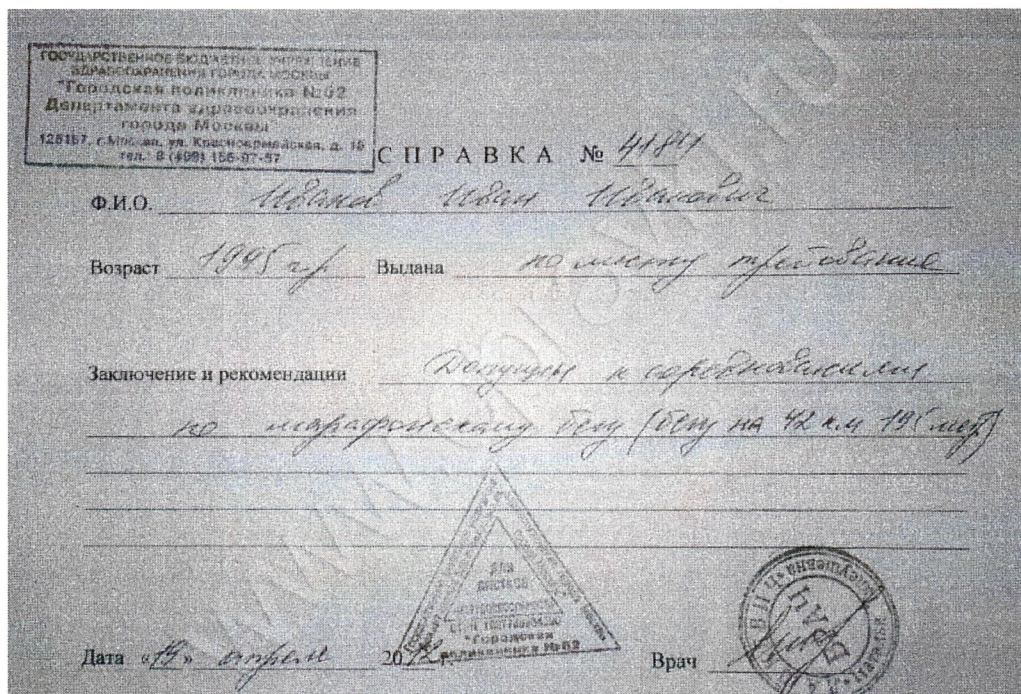 ГОСУДАРСТВЕННОЕ БЮДЖЕТНОЕ УЧРЕЖДЕНИЕ
ЗДРАВООХРАНЕНИЯ ГОРОДА МОСКВЫ
"Городская поликлиника №62
Департамента здравоохранения
города Москвы
125167, г. Москва, ул. Красноармейская, д. 18
СПРАВКА №
Ф.И.О. Иванов Иван Иванович
Возраст 1995 г.р. Выдана по месту требования
Заключение и рекомендации Допущен к соревнованиям
по марафонскому бегу (бегу на 42 км 195 мет)
для
"Городская
поликлиника №62
Дата «19» апреля 20 г.
Врач
ВРАЧ